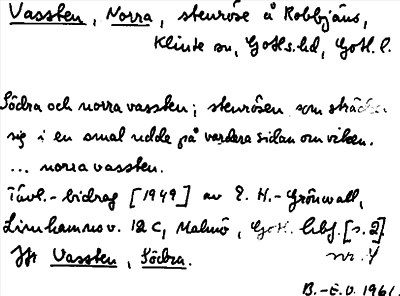 Vassten, Norra, stenröse å Robbjäns,
Klinte sn, Gotls. hd, Gotl. l.
Södra och norra vassten; stenrösen som sträcker
sig i en smal udde på vardera sidan om viken.
... norra vassten.
Tävl.-bidrag [1949] av E. H.-Grönwall,
Limhamnsv. 12 C, Malmö, Gotl. [s. 2]
Jfr Vassten, Södra. nr. 4
B.-E.O. 1961.